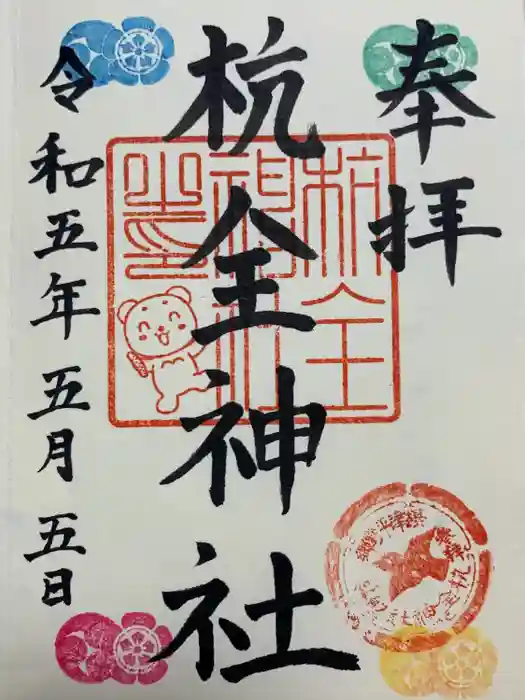 奉拝
杭全神社
令和五年五月五日
杭全
神社
之印